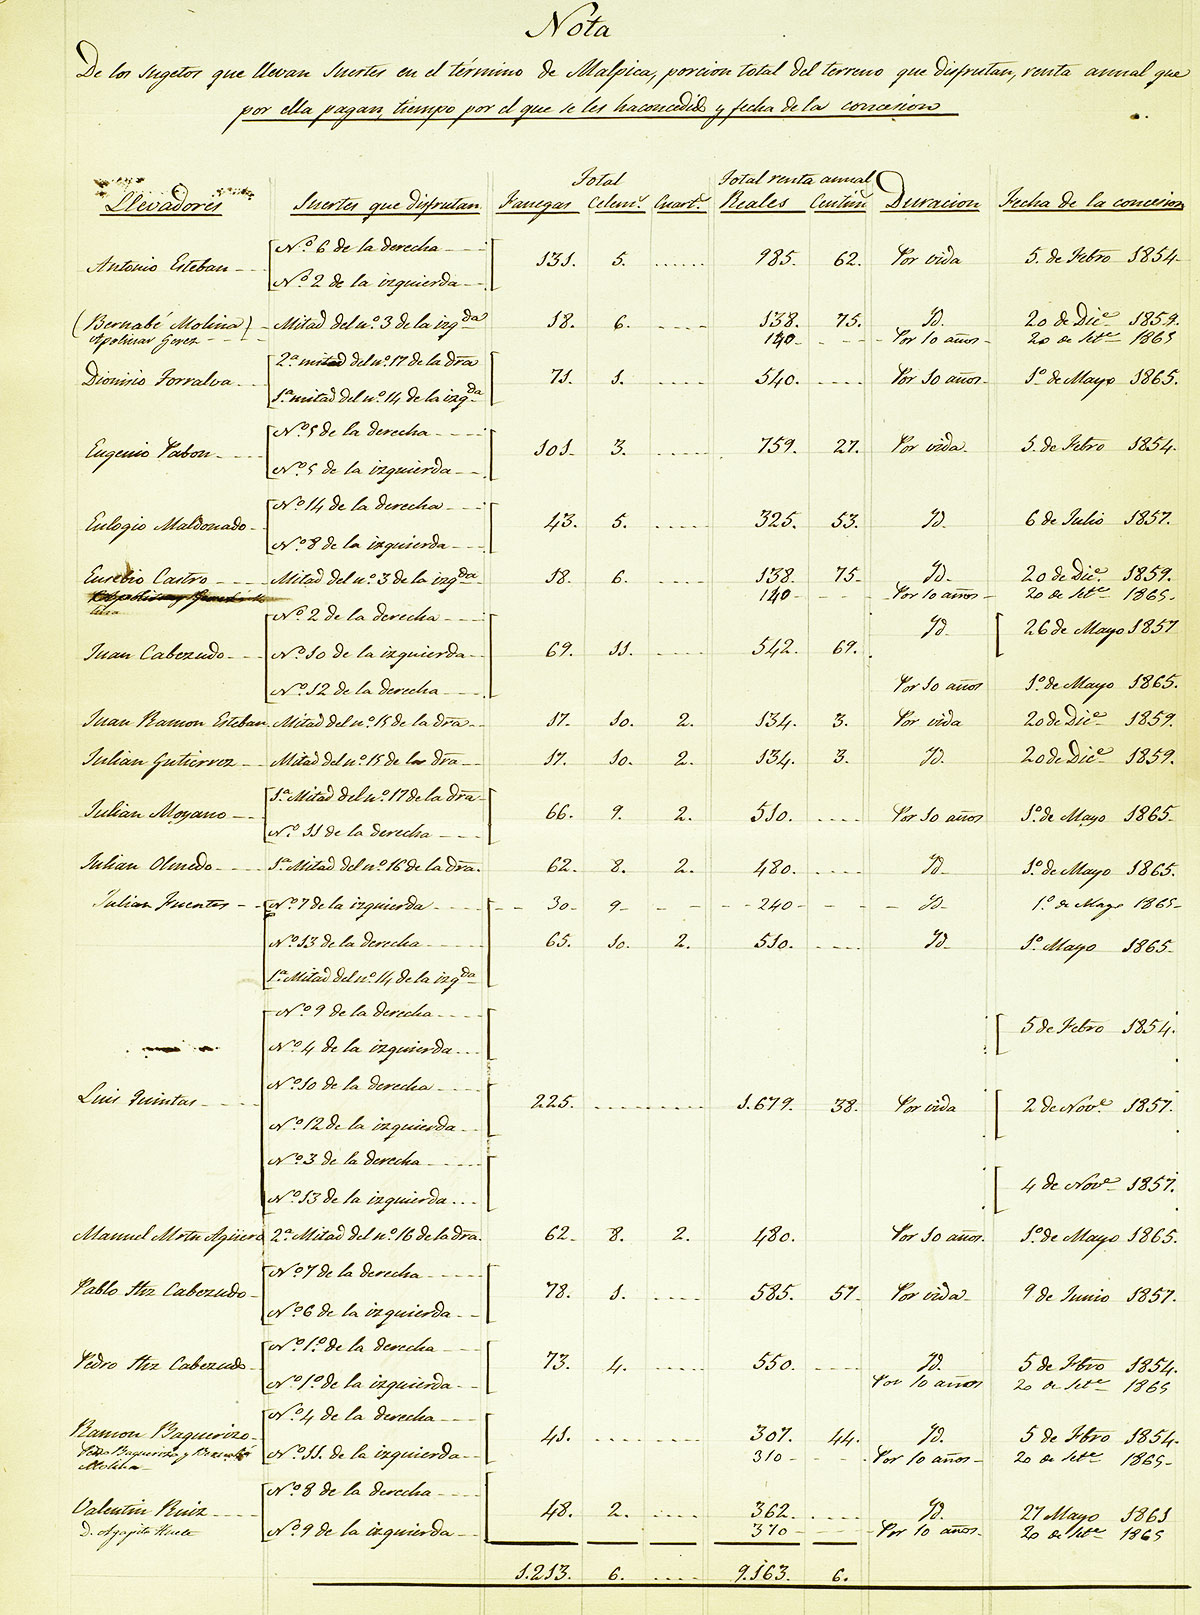 Nota
De los sugetos que llevan suertes en el término de Malpica, porcion total del terreno que disfrutan, renta anual que
por ella pagan, tiempo por el que se les ha concedido y fecha de la concesion
Total Total renta anual
Llevadores Suertes que disfrutan Fanegas Celem.s Cuart.s Reales Centim.s Duracion Fecha de la concesion
N.º 6 de la derecha
Antonio Esteban 131. 5. ...... 985. 62. Por vida 5. de Febro 1854
N.º 2 de la izquierda
(Bernabé Molina) Mitad del n.º 3 de la izqda 18. 6. 138. 75. Yd. 20 de Dic.e 1859.
Apolinar Gerez 140 Por 10 años 20 de Set.e 1865
2.ª mitad del n.º 17 de la dra
Dionisio Torralva 71. 1. 540. .... Por 10 años 1º de Mayo 1865.
1.ª mitad del n.º 14 de la izqda
N.º 5 de la derecha
Eugenio Pabon 101. 3. ..... 759. 27. Por vida 5. de Febro 1854
N.º 5 de la izquierda
N.º 14 de la derecha
Eulogio Maldonado 43. 5. ..... 325. 53. Yd. 6 de Julio 1857.
N.º 8 de la izquierda
Eusebio Castro Mitad del n.º 3 de la izqda 18. 6. ..... 138. 75 Yd. 20 de Dic.e 1859.
140 Por 10 años 20 de Set.e 1865
N.º 2 de la derecha
Yd. 26 de Mayo 1857
Juan Cabezudo N.º 10 de la izquierda 69. 11. .... 542. 69.
N.º 12 de la derecha Por 10 años 1º de Mayo 1865.
Juan Ramon Esteban Mitad del n.º 15 de la dra 17. 10. 2. 134. 3. Por vida 20 de Dic.e 1859.
Julian Gutierrez Mitad del n.º 15 de la dra 17. 10. 2. 134. 3. Yd. 20 de Dic.e 1859.
1.ª Mitad del n.º 17 de la dra
Julian Moyano 66. 9. 2. 510. .... Por 10 años 1º de Mayo 1865
N.º 11 de la derecha
Julian Olmedo 1.ª Mitad del n.º 16 de la dra. 62. 8. 2. 480. .... Yd 1º de Mayo 1865.
Julian Fuentes N.º 7 de la izquierda 30 9 240 Yd 1º de Mayo 1865
N.º 13 de la derecha 65. 10. 2. 510. .... Yd 1º Mayo 1865
1.ª Mitad del n.º 14 de la izqda
N.º 9 de la derecha
5 de Febro 1854.
N.º 4 de la izquierda
N.º 10 de la derecha
Luis Quintas 225. .......... 1.679. 38. Por vida 2 de Nov.e 1857.
N.º 12 de la izquierda
N.º 3 de la derecha
4 de Nov.e 1857.
N.º 13 de la izquierda
Manuel Mrtn Agüero 2.ª Mitad del n.º 16 de la dra. 62 8. 2. 480. Por 10 años. 1º de Mayo 1865.
N.º 7 de la derecha
Pablo Hrz Cabezudo 78. 1. ..... 585. 57. Por vida 9 de Junio 1857.
N.º 6 de la izquierda
N.º 1.º de la derecha
Pedro Hrz Cabezudo 73. 4. ..... 550. .... Yd. 5 de Fbro 1854.
N.º 1.º de la izquierda Por 10 años 20 de Set.e 1865
N.º 4 de la derecha
Ramon Baquerizo 41. ......... 307. 44. Yd. 5 de Fbro 1854.
Baquerizo y Bernabé N.º 11. de la izquierda 310 Por 10 años 20 de Set.e 1865
Molina
N.º 8 de la derecha
Valentin Ruiz 48. 2. ..... 362. ..... Yd. 27 Mayo 1861
D. Agapito N.º 9 de la izquierda 370 Por 10 años 20 de Set.e 1865
1.213. 6. .... 9.163. 6.